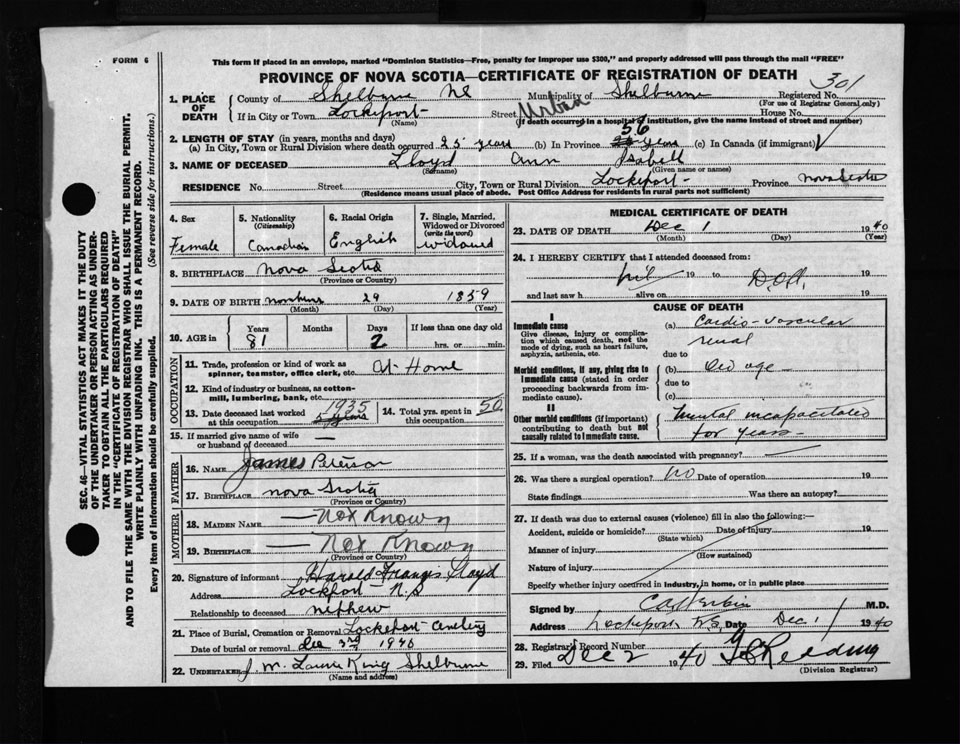 FORM 6
This form if placed in an envelope, marked "Dominion Statistics—Free, penalty for improper use $300," and properly addressed will pass through the mail "FREE"
PROVINCE OF NOVA SCOTIA—CERTIFICATE OF REGISTRATION OF DEATH
301
1. PLACE OF DEATH County of Shelburne NS Municipality of Shelburne Registered No.
(For use of Registrar General only)
If in City or Town Lockeport Street Urban House No.
(Name) (If death occurred in a hospital or institution, give the name instead of street and number)
2. LENGTH OF STAY (in years, months and days)
(a) In City, Town or Rural Division where death occurred 25 years (b) In Province 56 years (c) In Canada (if immigrant)
3. NAME OF DECEASED Lloyd Ann Isabell
(Surname) (Given name or names)
RESIDENCE No. Street City, Town or Rural Division Lockeport Province Nova Scotia
(Residence means usual place of abode. Post Office Address for residents in rural parts not sufficient)
4. Sex Female
5. Nationality (Citizenship) Canadian
6. Racial Origin English
7. Single, Married, Widowed or Divorced (write the word) widowed
8. BIRTHPLACE Nova Scotia
(Province or Country)
9. DATE OF BIRTH 29 1859
(Month) (Day) (Year)
10. AGE in Years 81 Months Days 2 If less than one day old hrs. or min.
OCCUPATION
11. Trade, profession or kind of work as spinner, teamster, office clerk, etc. At Home
12. Kind of industry or business, as cotton-mill, lumbering, bank, etc.
13. Date deceased last worked at this occupation 1935 5 years
14. Total yrs. spent in this occupation 50
15. If married give name of wife or husband of deceased —
FATHER
16. NAME James Peterson
17. BIRTHPLACE Nova Scotia
(Province or Country)
MOTHER
18. MAIDEN NAME — Not Known
19. BIRTHPLACE — Not Known
(Province or Country)
20. Signature of informant Harold Francis Lloyd
Address Lockport N.S
Relationship to deceased nephew
21. Place of Burial, Cremation or Removal Lockeport Cemetery
Date of burial or removal Dec 3rd 1940
22. UNDERTAKER J. M. King Shelburne
(Name and address)
MEDICAL CERTIFICATE OF DEATH
23. DATE OF DEATH Dec 1 1940
(Month) (Day) (Year)
24. I HEREBY CERTIFY that I attended deceased from:
nil 19 to 19
and last saw h alive on 19
CAUSE OF DEATH
I
Immediate cause
Give disease, injury or complication which caused death, not the mode of dying, such as heart failure, asphyxia, asthenia, etc.
(a) Cardio-vascular
renal
due to
Morbid conditions, if any, giving rise to Immediate cause (stated in order proceeding backwards from immediate cause).
(b) Old age
due to
(c)
II
Other morbid conditions (if important) contributing to death but not causally related to Immediate cause.
Mental incapacitated
for years
25. If a woman, was the death associated with pregnancy? —
26. Was there a surgical operation? No Date of operation 19
State findings Was there an autopsy?
27. If death was due to external causes (violence) fill in also the following:—
Accident, suicide or homicide? Date of injury 19
(State which)
Manner of injury
(How sustained)
Nature of injury
Specify whether injury occurred in industry, in home, or in public place
Signed by M.D.
Address Lockeport N.S. Date Dec 1 1940
28. Registrar's Record Number
29. Filed Dec 2 1940
(Division Registrar)
SEC. 46—VITAL STATISTICS ACT MAKES IT THE DUTY
OF THE UNDERTAKER OR PERSON ACTING AS UNDERTAKER TO OBTAIN ALL THE PARTICULARS REQUIRED
IN THE "CERTIFICATE OF REGISTRATION OF DEATH"
AND TO FILE THE SAME WITH THE DIVISION REGISTRAR WHO SHALL ISSUE THE BURIAL PERMIT.
WRITE PLAINLY WITH UNFADING INK. THIS IS A PERMANENT RECORD.
Every item of information should be carefully supplied. (See reverse side for instructions.)